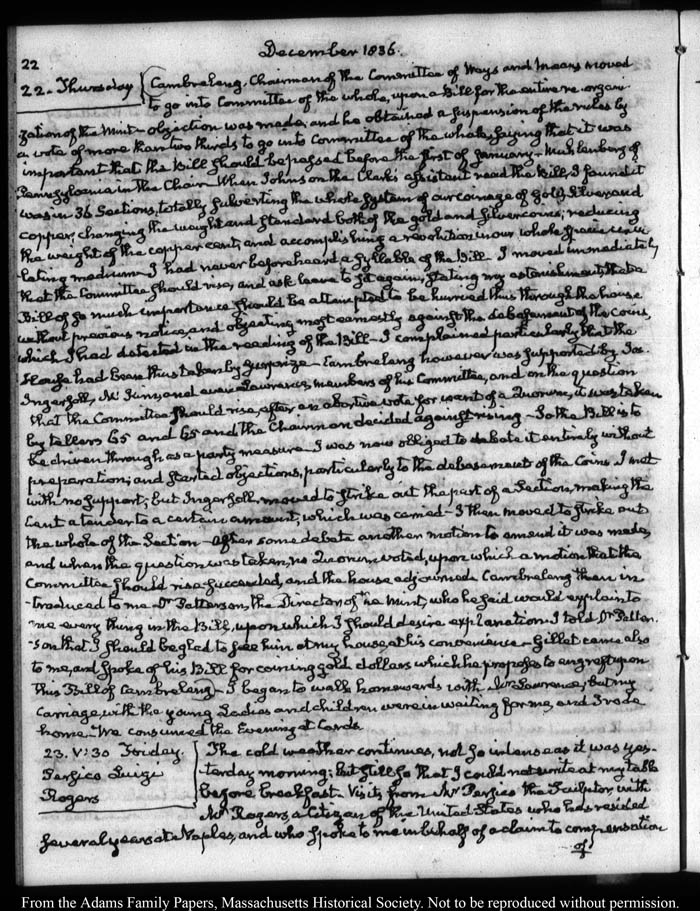 December 1836.
22
22. Thursday Cambreleng, Chairman of the Committee of Ways and Means moved
to go into Committee of the whole, upon a Bill for the entire re-organi-
zation of the Mint—objection was made, and he obtained a suspension of the rules by
a vote of more than two thirds to go into Committee of the whole, saying that it was
important that the Bill should be passed before the first of January—Muhlenberg of
Pennsylvania in the Chair. When Johnson the Clerk's assistant read the Bill, I found it
was in 36 Sections, totally subverting the whole System of our coinage of gold, silver and
copper; changing the weight and standard both of the gold and silver coins; reducing
the weight of the copper cent, and accomplishing a revolution in our whole circu-
lating medium—I had never before heard a syllable of the Bill. I moved immediately
that the Committee should rise, and ask leave to sit again, stating my astonishment that a
Bill of so much importance should be attempted to be hurried thus through the house
without previous notice, and objecting most earnestly against the debasement of the coins,
which I had detected in the reading of the Bill—I complained particularly that the
House had been thus taken by surprize—Cambreleng however was supported by Jos.
Ingersoll, McKim, and even Lawrence, members of his Committee, and on the question
that the Committee should rise, after an abortive vote for want of a Quorum, it was taken
by tellers 65 and 65 and the Chairman decided against rising—So the Bill is to
be driven through as a party measure. I was now obliged to debate it entirely without
preparation; and started objections, particularly to the debasement of the Coins. I met
with no support; but Ingersoll moved to strike out the part of a Section, making the
Cent a tender to a certain amount, which was carried—I then moved to strike out
the whole of the Section—After some debate another motion to amend it was made,
and when the question was taken, no Quorum voted, upon which a motion that the
Committee should rise succeeded, and the house adjourned. Cambreleng then in-
-troduced to me Dr Patterson, the Director of the Mint, who he said would explain to
me every thing in the Bill, upon which I should desire explanation. I told Dr Patter-
son that I should be glad to see him at my house at his convenience—Gillet came also
to me, and spoke of his Bill for coining gold dollars which he proposes to engraft upon
this Bill of Cambreleng—I began to walk homewards with Mr Lawrence, but my
Carriage, with the young Ladies and children were in waiting for me, and I rode
home. We consumed the Evening at Cards.
23. V:30 Friday.
Persico Luigi
Rogers
The cold weather continues, not so intense as it was yes-
-terday morning; but still so that I could not write at my table
before breakfast. Visits from Mr Persico the Sculptor, with
Mr Rogers, a Citizen of the United States who has resided
several years at Naples, and who spoke to me in behalf of a claim to compensation
of
From the Adams Family Papers, Massachusetts Historical Society. Not to be reproduced without permission.